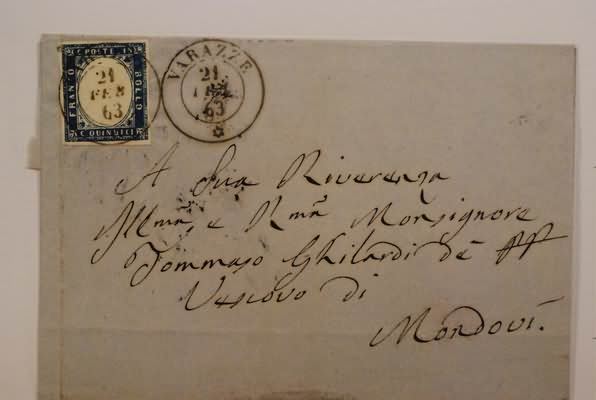 C. POSTE IN
FRANCO
BOLLO
C. QUINDICI
21
FEB
63
VARAZZE
21
FEB
63
A Sua Riverenza
Illma, e Rma Monsignore
Tommaso Ghilardi de PP
Vescovo di
Mondovì.